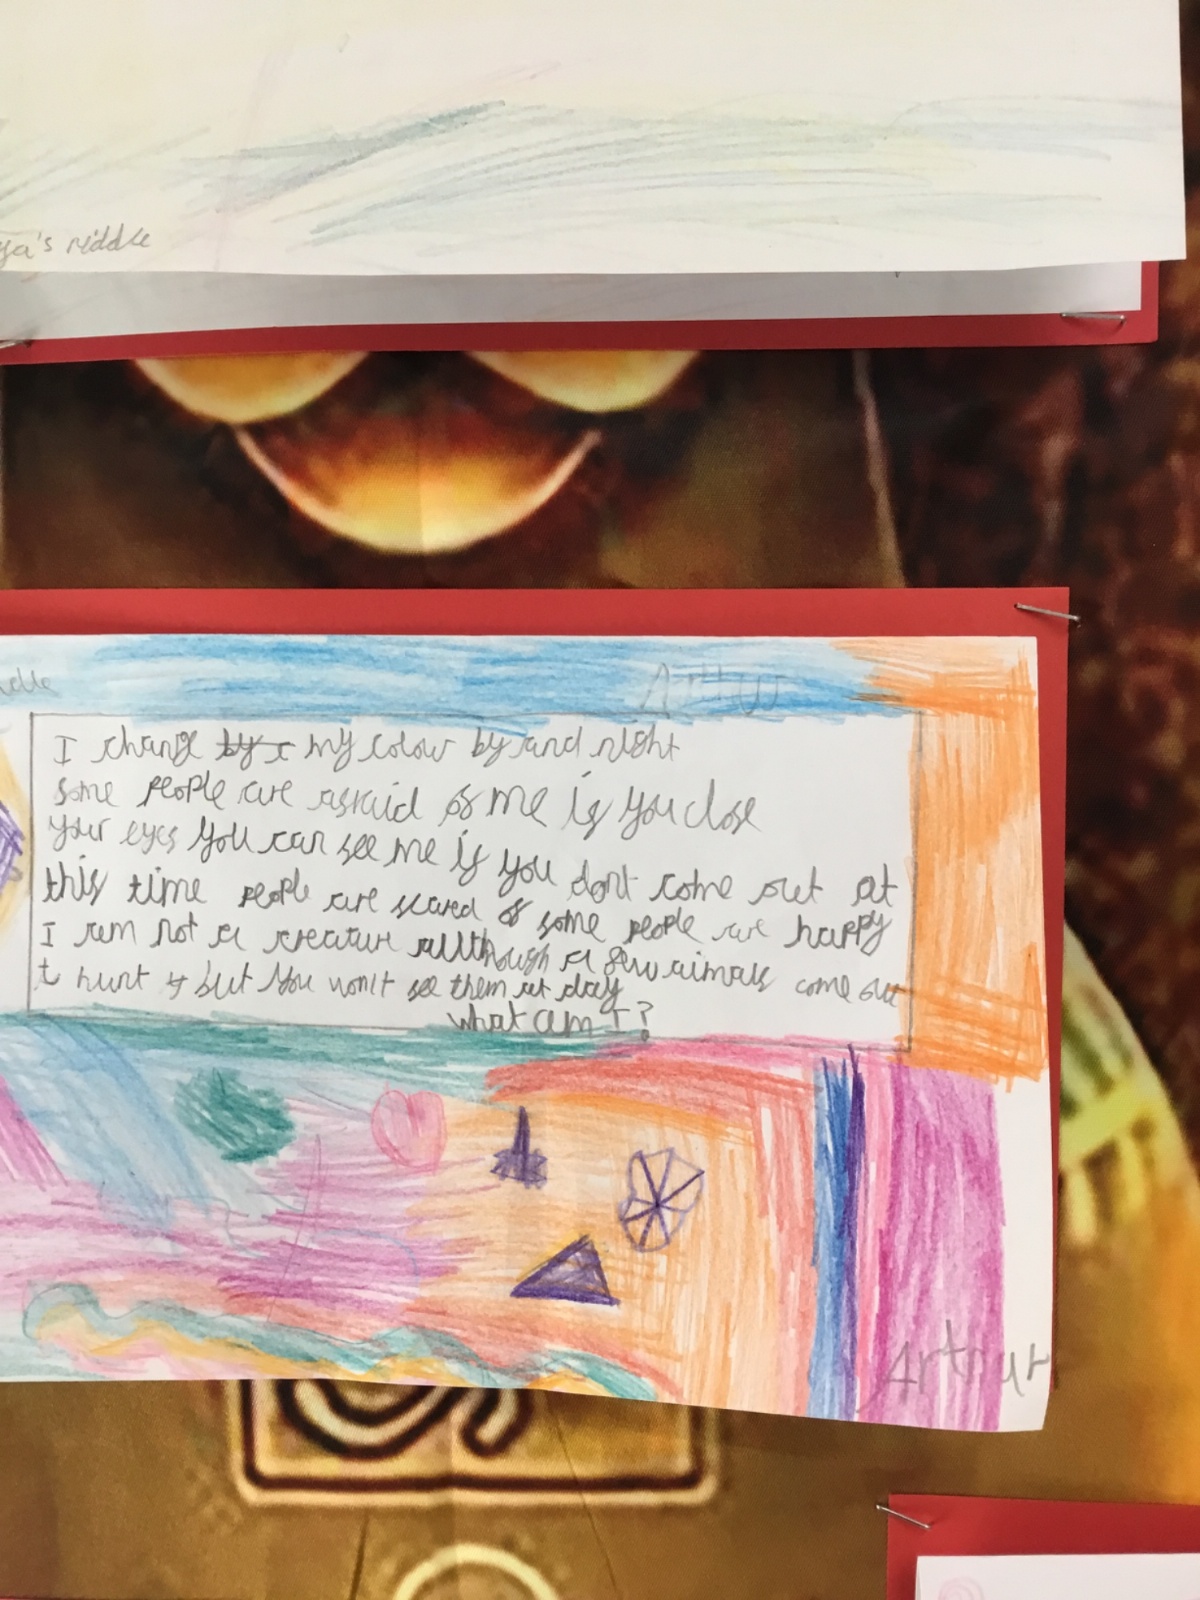 ya's riddle
Arthur
I change by my colour by and night
some people are afraid of me if you close
your eyes you can see me if you dont come out at
this time people are scared of some people are happy
I am not a creature allthough a few aimals come out
t hunt but you wonlt see them at day
what am I?
Arthur